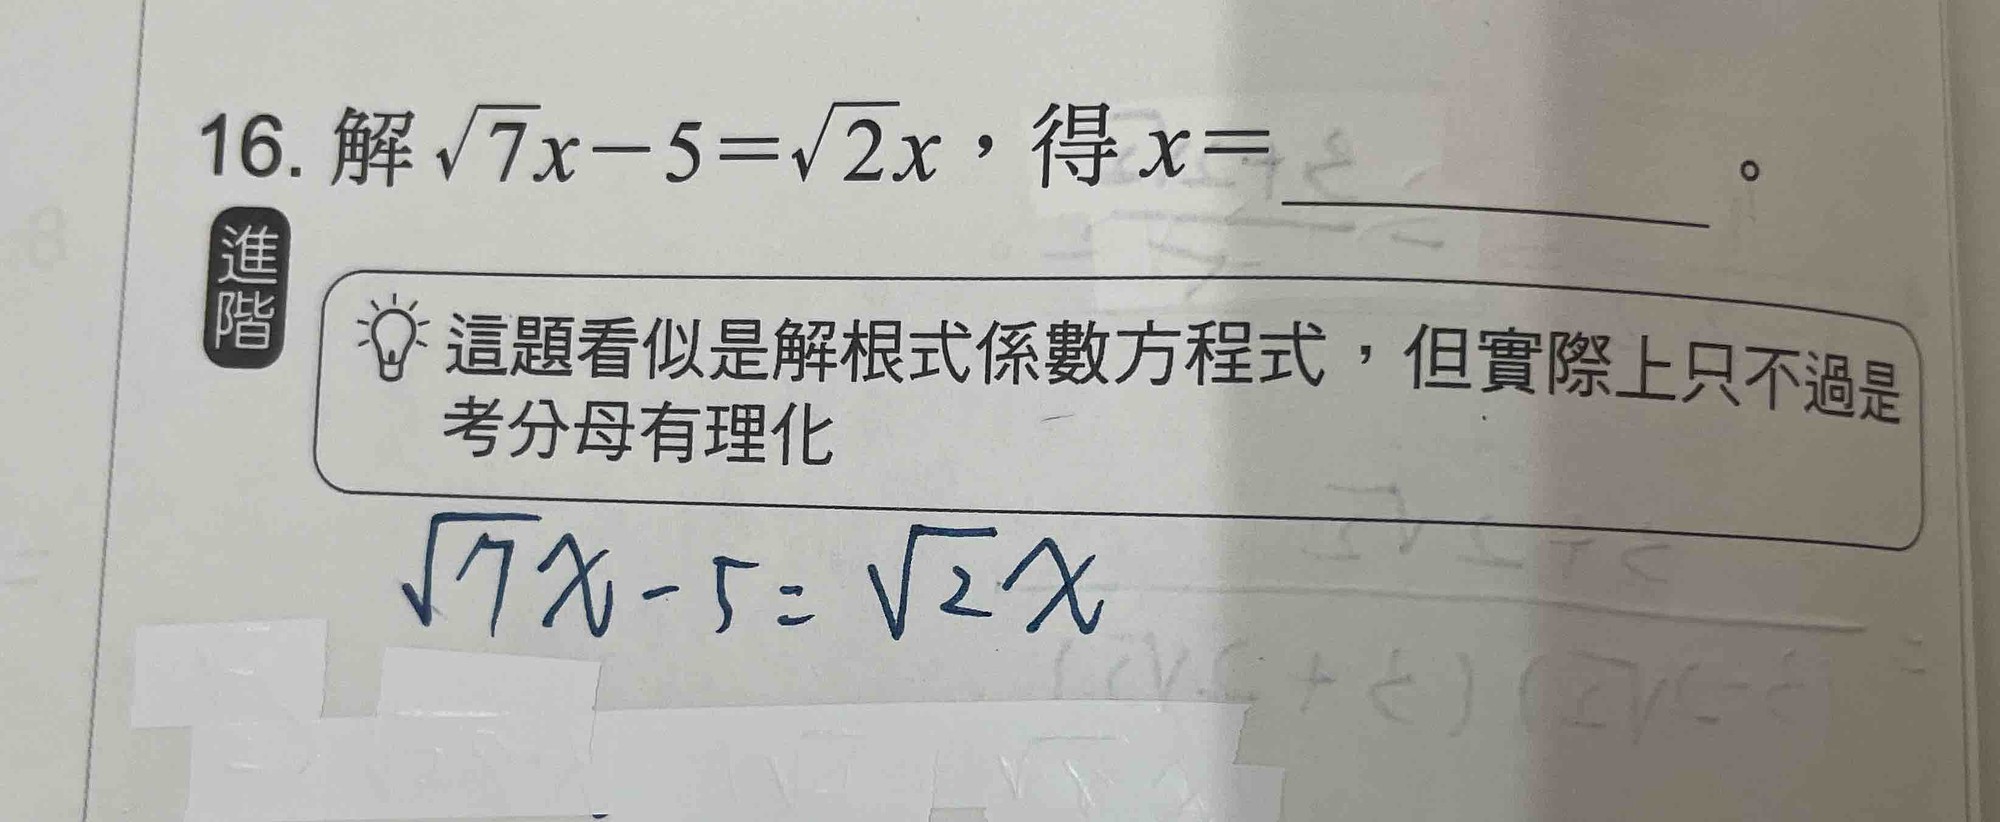 16. 解√7x−5=√2x，得x=________。
進階
這題看似是解根式係數方程式，但實際上只不過是
考分母有理化
√7x-5=√2x